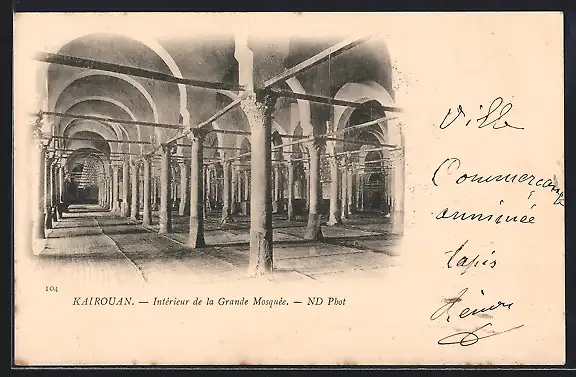 104
KAIROUAN. — Intérieur de la Grande Mosquée. — ND Phot
Ville
Commerçante
animée
tapis